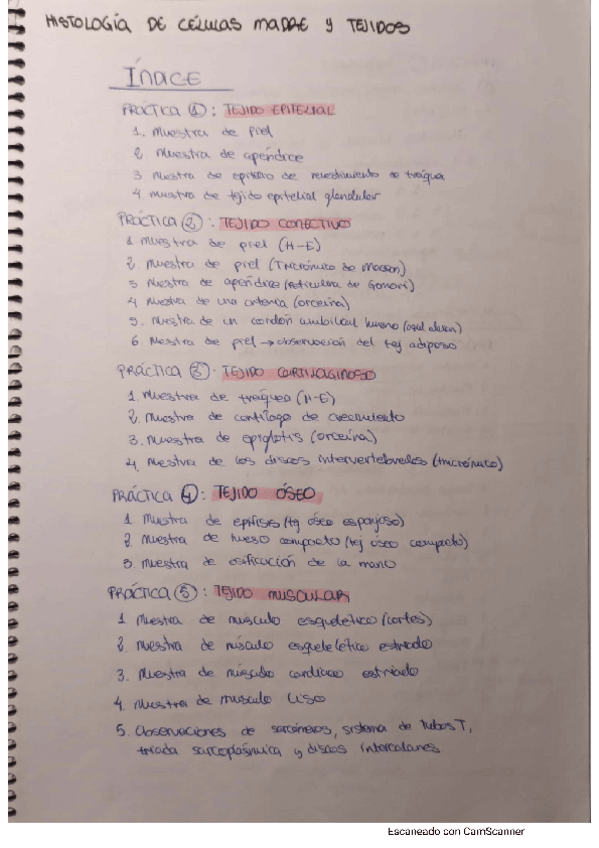 HISTOLOGÍA DE CÉLULAS MADRE Y TEJIDOS
ÍNDICE
PRÁCTICA 1: TEJIDO EPITELIAL
1. Muestra de piel
2. Muestra de apéndice
3. Muestra de epitelio de revestimiento de tráquea
4. Muestra de tejido epitelial glandular
PRÁCTICA 2: TEJIDO CONECTIVO
1. Muestra de piel (H-E)
2. Muestra de piel (Tricrómico de Masson)
3. Muestra de apéndice (reticulina de Gomori)
4. Muestra de una arteria (orceína)
5. Muestra de un cordón umbilical humano (azul alcian)
6. Muestra de piel → observación del tej adiposo
PRÁCTICA 3: TEJIDO CARTILAGINOSO
1. Muestra de tráquea (H-E)
2. Muestra de cartílago de crecimiento
3. Muestra de epiglotis (orceína)
4. Muestra de los discos intervertebrales (tricrómico)
PRÁCTICA 4: TEJIDO ÓSEO
1. Muestra de epífisis (tej óseo esponjoso)
2. Muestra de hueso compacto (tej óseo compacto)
3. Muestra de osificación de la mano
PRÁCTICA 5: TEJIDO MUSCULAR
1. Muestra de músculo esquelético (cortes)
2. Muestra de músculo esquelético estriado
3. Muestra de músculo cardiaco estriado
4. Muestra de musculo liso
5. Observaciones de sarcómeros, sistema de Tubos T,
triada sarcoplásmica y discos intercalares
Escaneado con CamScanner